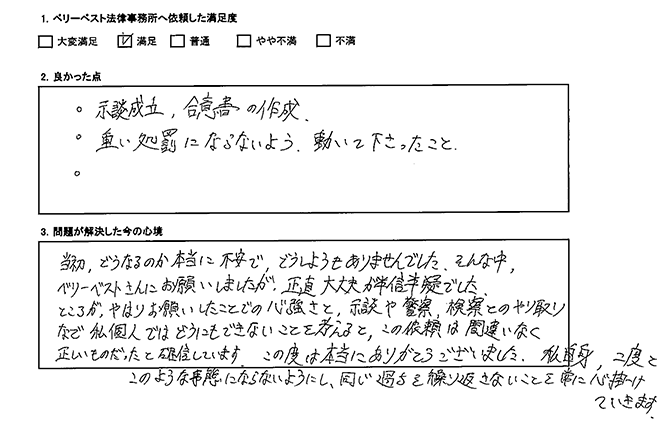 1. ベリーベスト法律事務所へ依頼した満足度
大変満足 満足 普通 やや不満 不満
2. 良かった点
。示談成立,合意書の作成.
。重い処罰にならないよう.動いて下さったこと.
。
3. 問題が解決した今の心境
当初,どうなるのか本当に不安で,どうしようもありませんでした.そんな中,
ベリーベストさんにお願いしましたが,正直大丈夫か半信半疑でした.
ところが,やはりお願いしたことでの心強さと,示談や警察,検察とのやり取り
など私個人ではどうにもできないことを考えると,この依頼は間違いなく
正しいものだったと確信しています.この度は本当にありがとうございました.私自身,二度と
このような事態にならないようにし,同じ過ちを繰り返さないことを常に心掛け
ていきます.